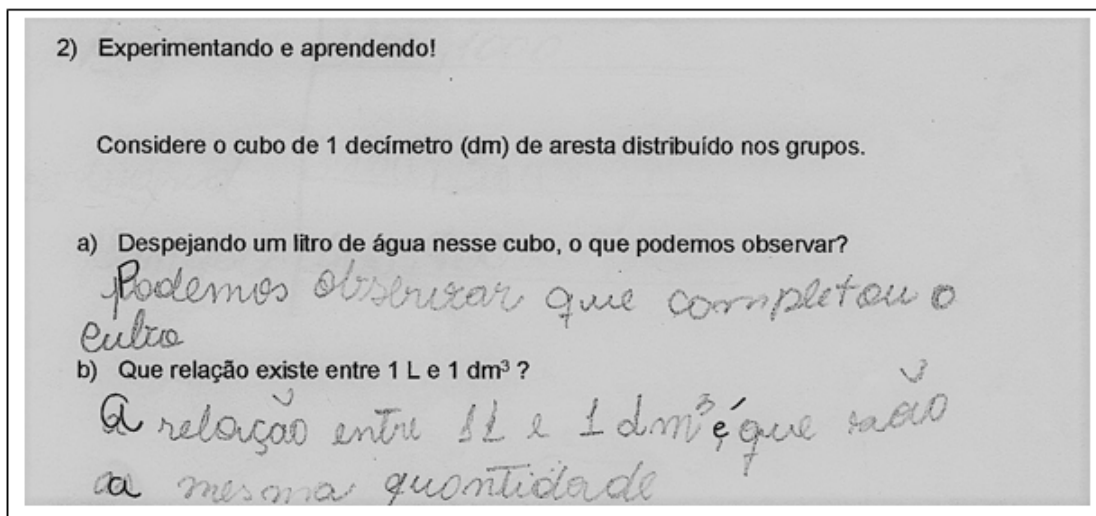 2) Experimentando e aprendendo!
Considere o cubo de 1 decímetro (dm) de aresta distribuído nos grupos.
a) Despejando um litro de água nesse cubo, o que podemos observar?
Podemos observar que completou o
cubo
b) Que relação existe entre 1 L e 1 dm³ ?
A relação entre 1L e 1 dm³ é que são
a mesma quantidade